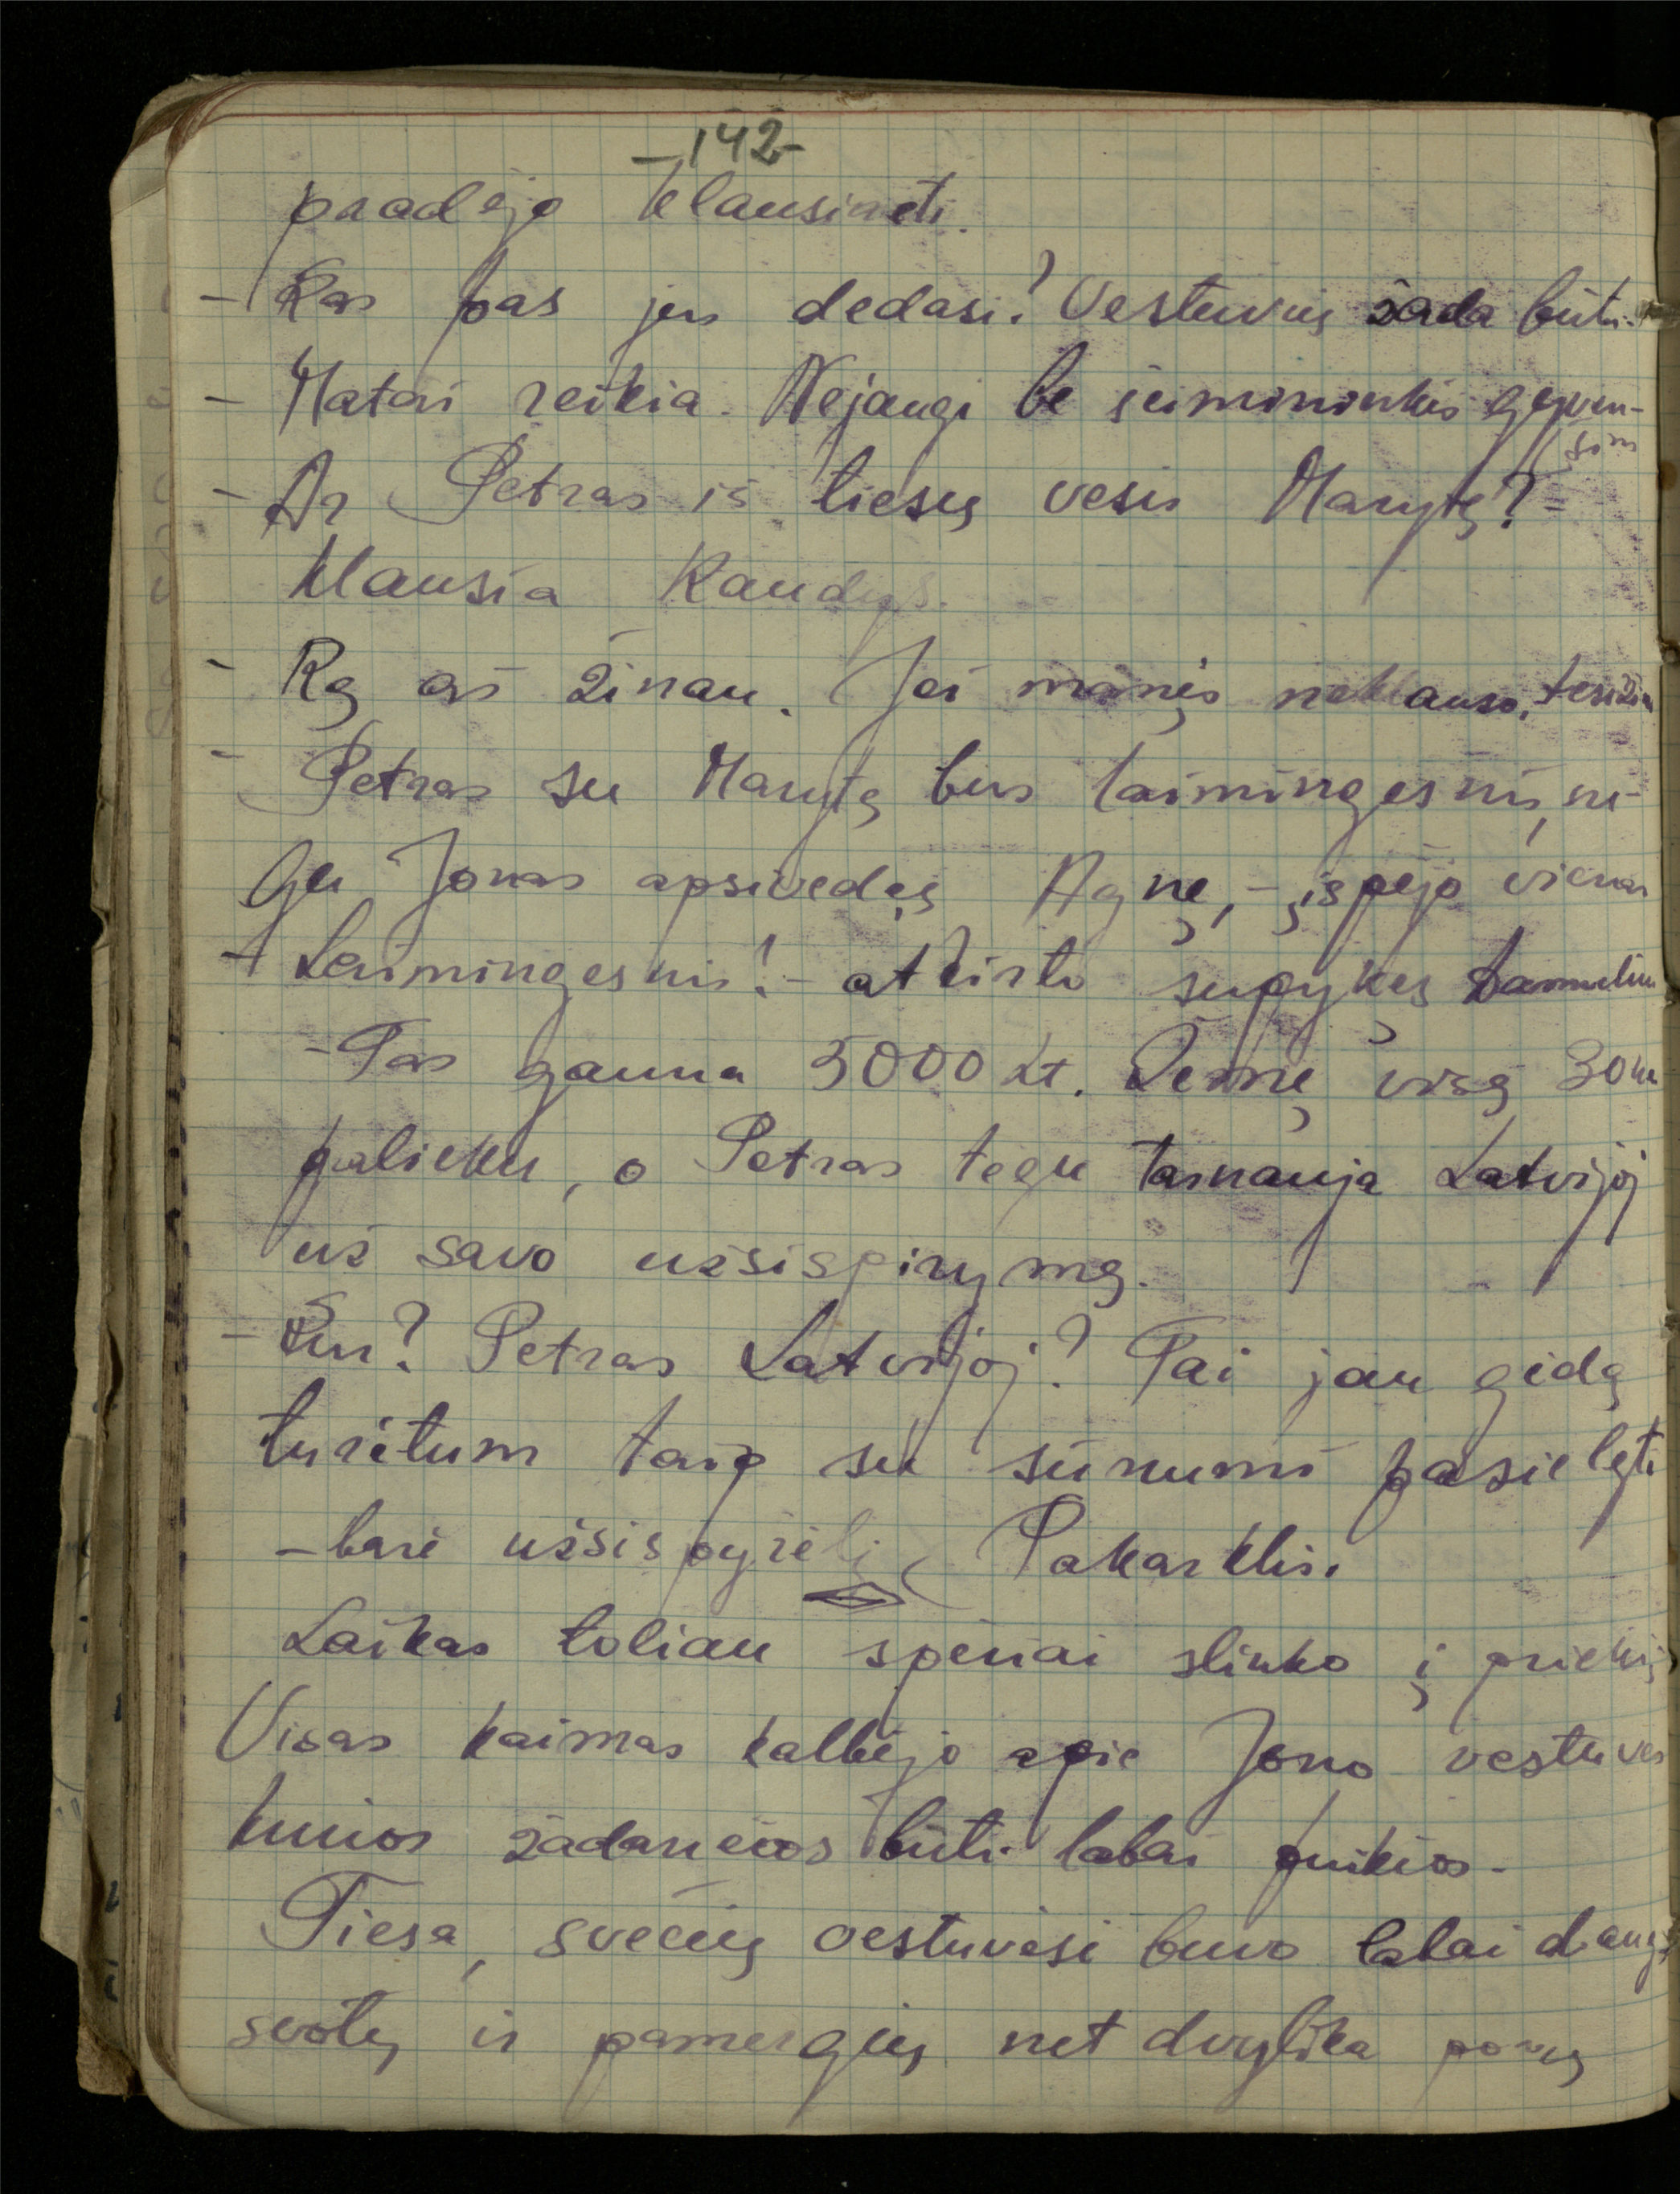 -142-
pradėjo klausinėti.
- Kas pas jus dedasi? Vestuvių žada būti.
- Matai reikia. Nejaugi be šeimininkės gyven-
sim
- Ar Petras iš tiesų vesis Marytę? -
klausia Kaudys.
- Ką aš žinau. Jei manęs neklauso, težin
- Petras su Marytę bus laimingesnis, ne-
gu Jonas apsivedęs Agnę, - įspėjo vienas
- Laimingesnis! - atkirto supykęs
- Tas gauna 5000 Lt. Žemę visą 30 ha
palieku, o Petras tegu tarnauja Latvijoj
už savo užsispirymą.
- Kur? Petras Latvijoj? Tai jau gėdą
turėtum taip su sūnumi pasielgti
- barė užsispyrėlį Pakarklis.
Laikas toliau spėriai slinko į priekį
Visas kaimas kalbėjo apie Jono vestuves
kurios žadančios būti labai puikios.
Tiesa, svečių vestuvėsi buvo labai daug,
svotų ir pamergių net dvylika porų